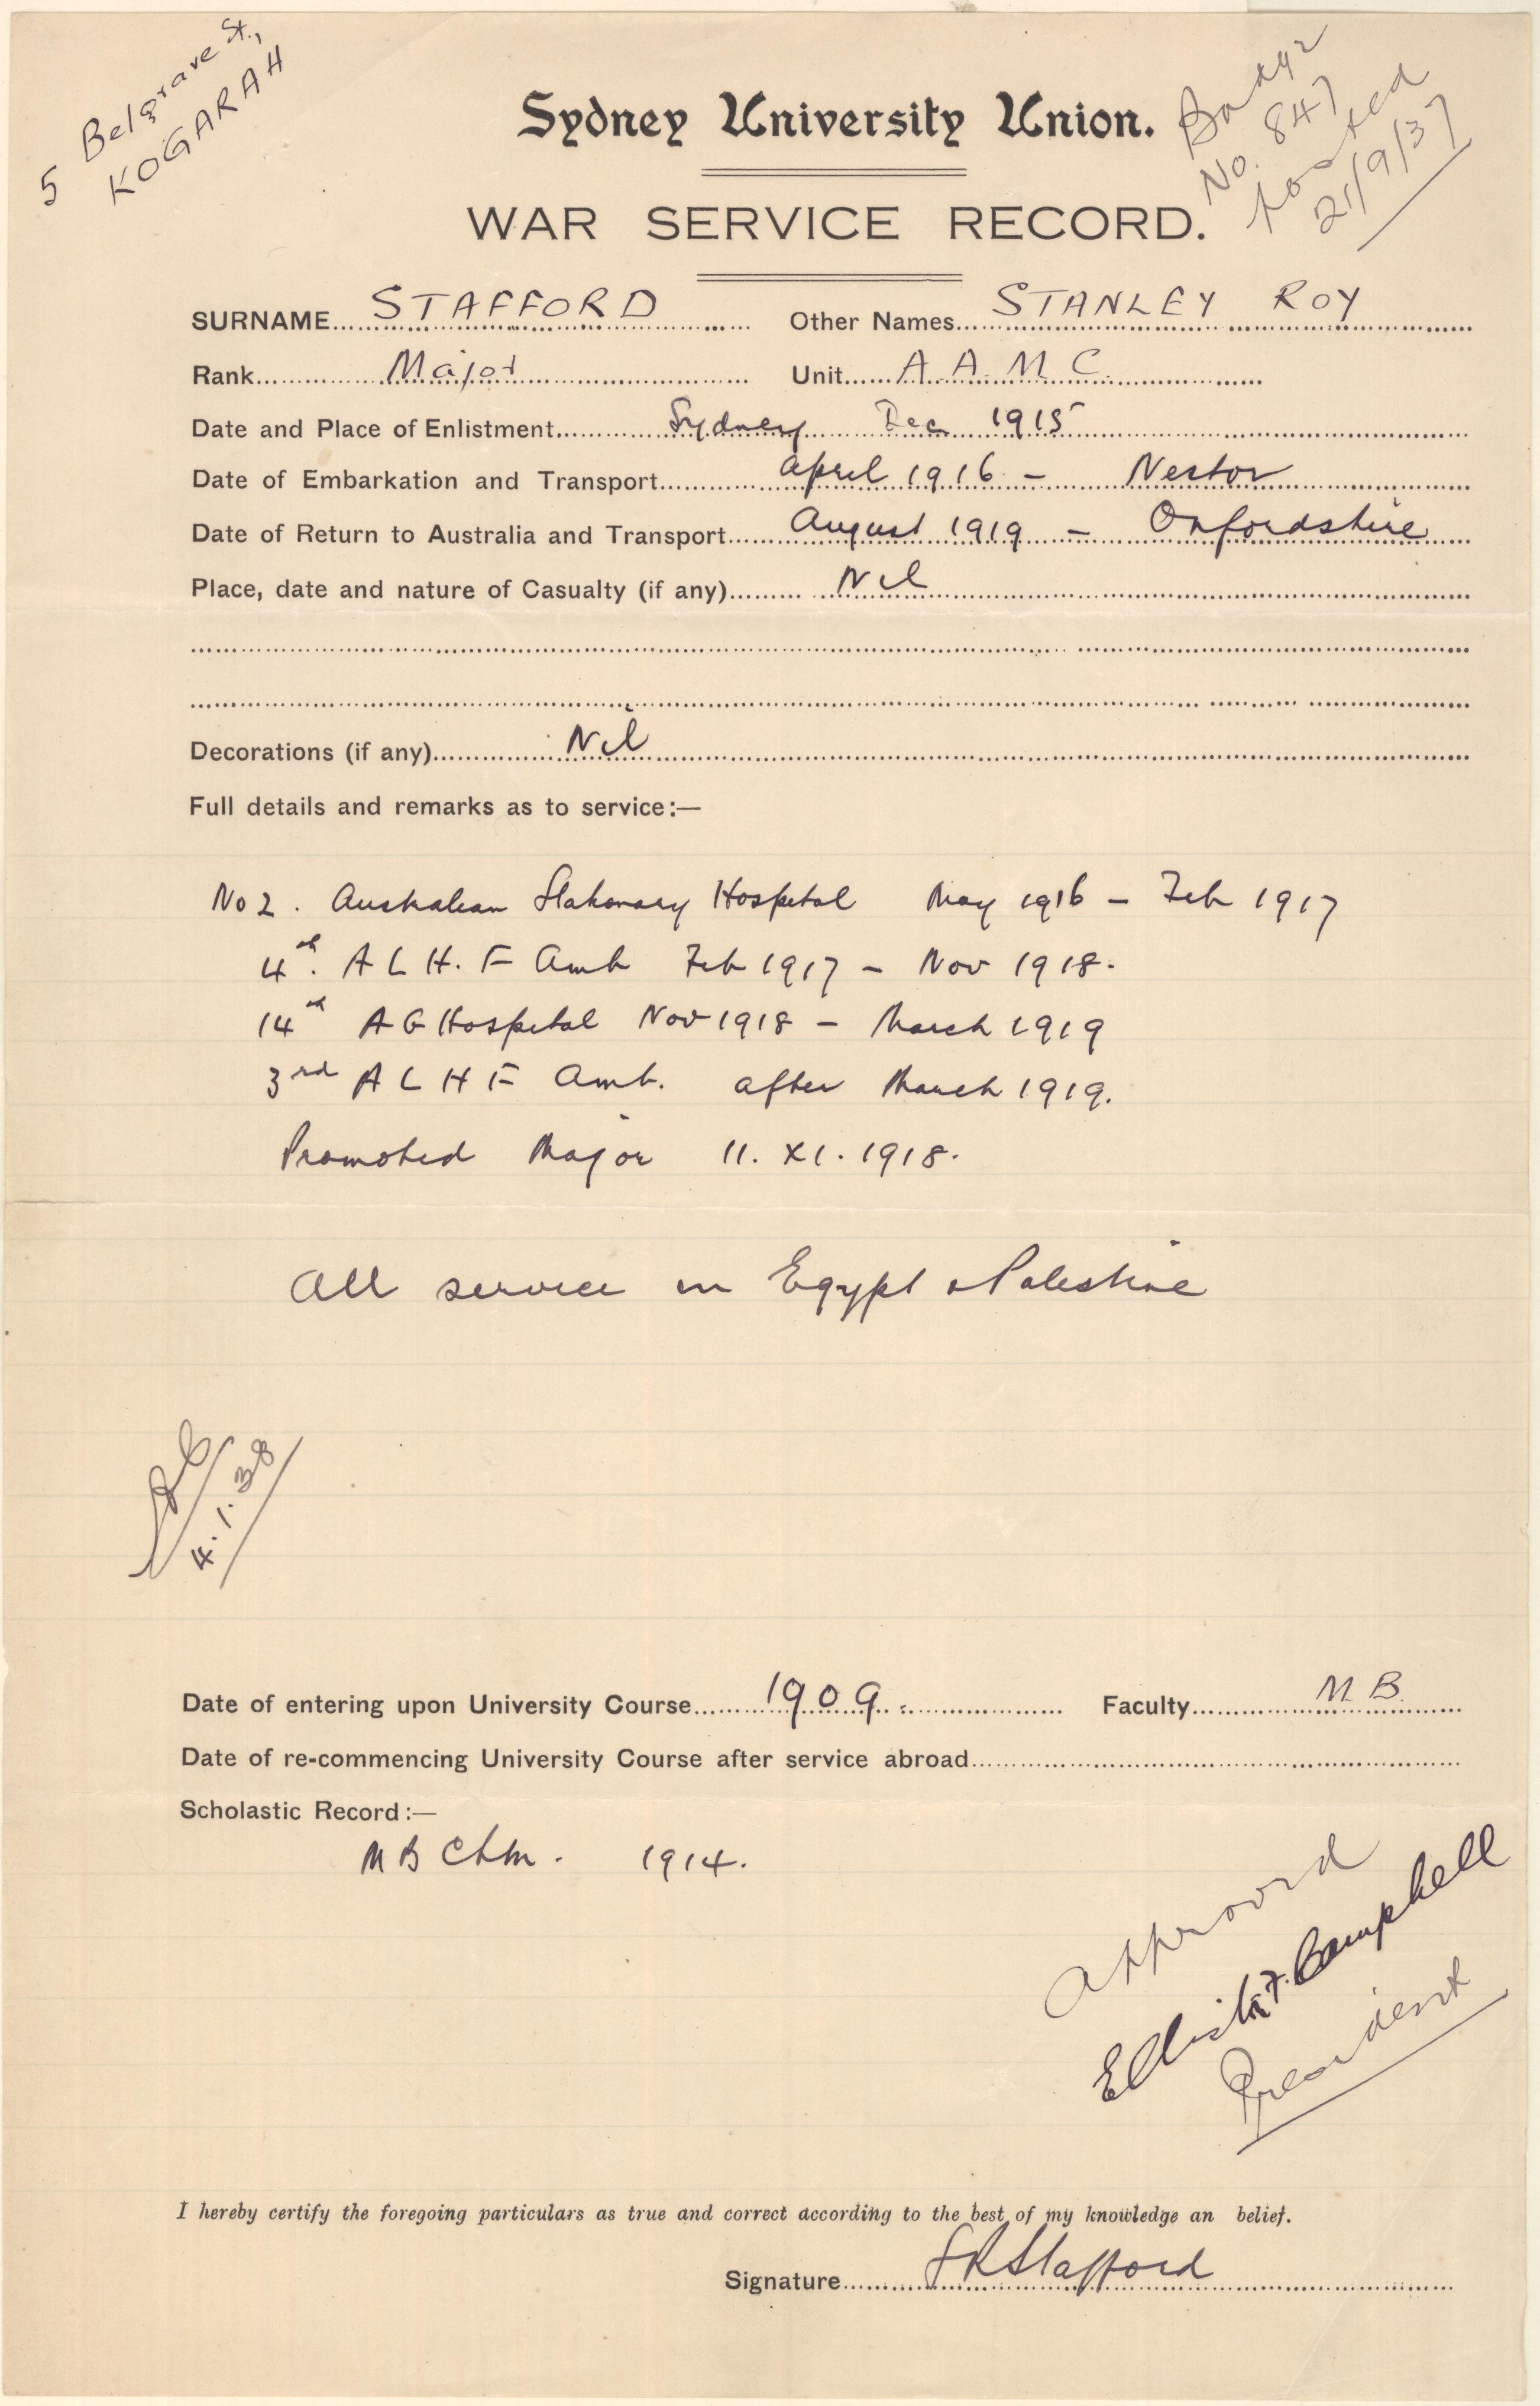 5 Belgrave St.,
KOGARAH
Badge
No. 847
posted
21/9/37
Sydney University Union.
WAR SERVICE RECORD.
SURNAME... STAFFORD ... Other Names... STANLEY ROY
Rank... Major ... Unit... A. A. M. C.
Date and Place of Enlistment... Sydney Dec 1915
Date of Embarkation and Transport... April 1916 - Nestor
Date of Return to Australia and Transport... August 1919 - Oxfordshire
Place, date and nature of Casualty (if any)... Nil
Decorations (if any)... Nil
Full details and remarks as to service:—
No 2. Australian Stationary Hospital May 1916 - Feb 1917
4th. A L H. F Amb Feb 1917 - Nov 1918.
14th A G Hospital Nov 1918 - March 1919
3rd A L H F Amb. after March 1919.
Promoted Major 11. XI. 1918.
All service in Egypt & Palestine
4.1.38
Date of entering upon University Course... 1909. Faculty... M. B.
Date of re-commencing University Course after service abroad...
Scholastic Record:—
M B ChM. 1914.
Approved
F. Campbell
President
I hereby certify the foregoing particulars as true and correct according to the best of my knowledge an belief.
Signature... S R Stafford